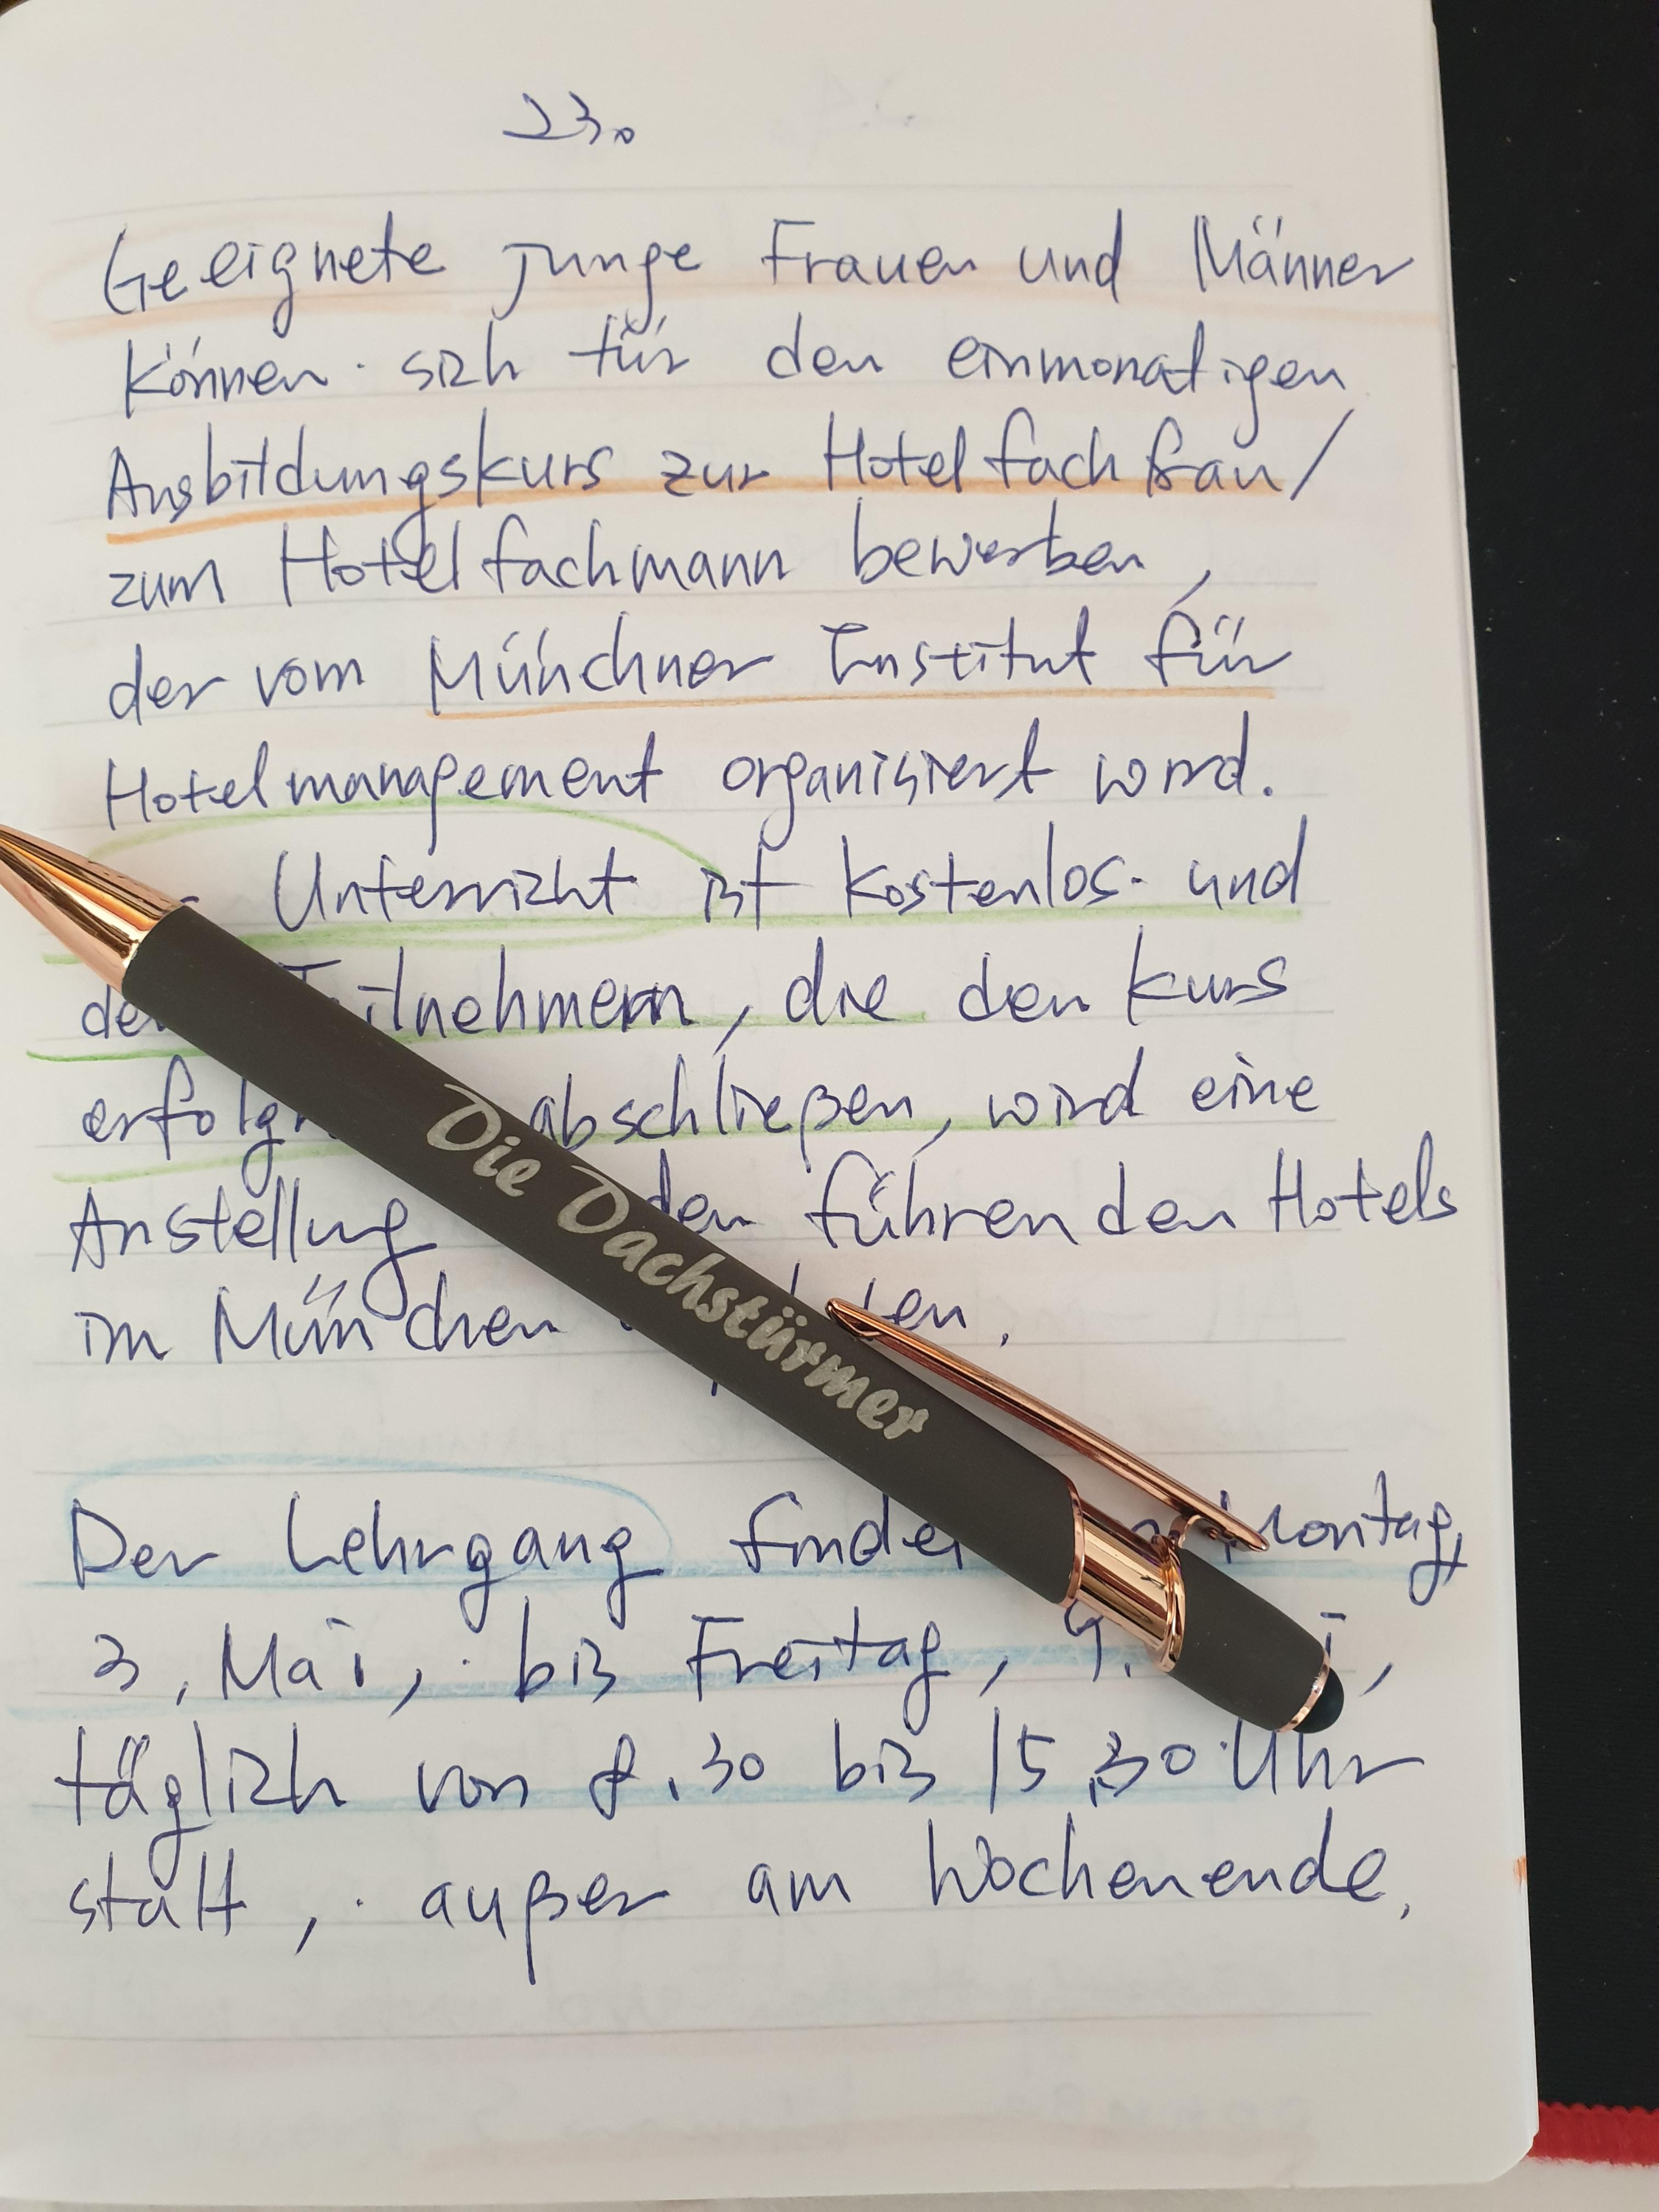 23.
Geeignete junge Frauen und Männer
können sich für den einmonatigen
Ausbildungskurs zur Hotelfachfrau/
zum Hotelfachmann bewerben,
der vom Münchner Institut für
Hotelmanagement organisiert wird.
Unterricht ist kostenlos und
die den Kurs
abschließen, wird eine
Anstellung den führenden Hotels
im München
Die Dachstürmer
Der Lehrgang Montag,
3. Mai, bis Freitag, 9.
täglich von 8.30 bis 15.30 Uhr
statt, außer am Wochenende.